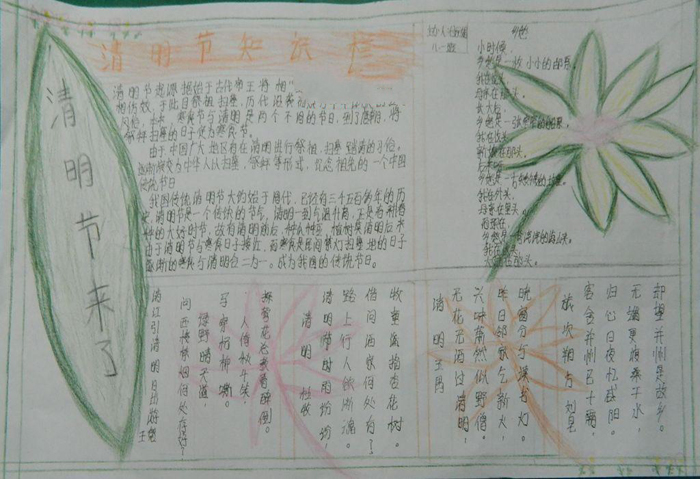 清明节来了
清明节知识栏
清明节起源据始于古代帝王将相“
相仿效，于此日祭祖扫墓，历代沿袭而成
风俗。本来，寒食节与清明是两个不同的节日，到了唐朝，将
祭拜扫墓的日子定为寒食节。
由于中国广大地区有在清明进行祭祖、扫墓、踏青的习俗。
逐渐演变为中华人以扫墓、祭拜等形式，纪念祖先的一个中国
传统节日
我国传统清明节大约始于周代，已经有二千五百多年的历
史。清明节是一个传统的节气，清明一到气温升高，正是春耕春
种的大好时节，故有清明前后，种瓜种豆。植树造清明后来
由于清明节与寒食日子接近，而寒食是民间禁火扫墓的日子
渐渐的寒食与清明合二为一。成为我国的传统节日。
乡愁
小时候
乡愁是一枚小小的邮票。
我在这头
母亲在那头。
长大后
乡愁是一张窄窄的船票。
我在这头
新娘在那头。
乡愁是一方矮矮的坟墓。
我在外头
母亲在里头。
而现在
乡愁是一湾浅浅的海峡。
我在这头
大陆在那头。
却望并州是故乡。
无端更渡桑干水
归心日夜忆咸阳。
客舍并州已十霜，
旅次朔方 刘皂
晓窗分与读书灯。
昨日邻家乞新火，
兴味萧然似野僧。
无花无酒过清明，
清明 王禹
牧童遥指杏花村。
借问酒家何处有？
路上行人欲断魂。
清明时节雨纷纷
清明 杜牧
拚有花应或有醉倒。
人俏秋千笑，
子家折柳
绿野明天道，
问西楼禁烟何处好？
清江引清明日出游 王